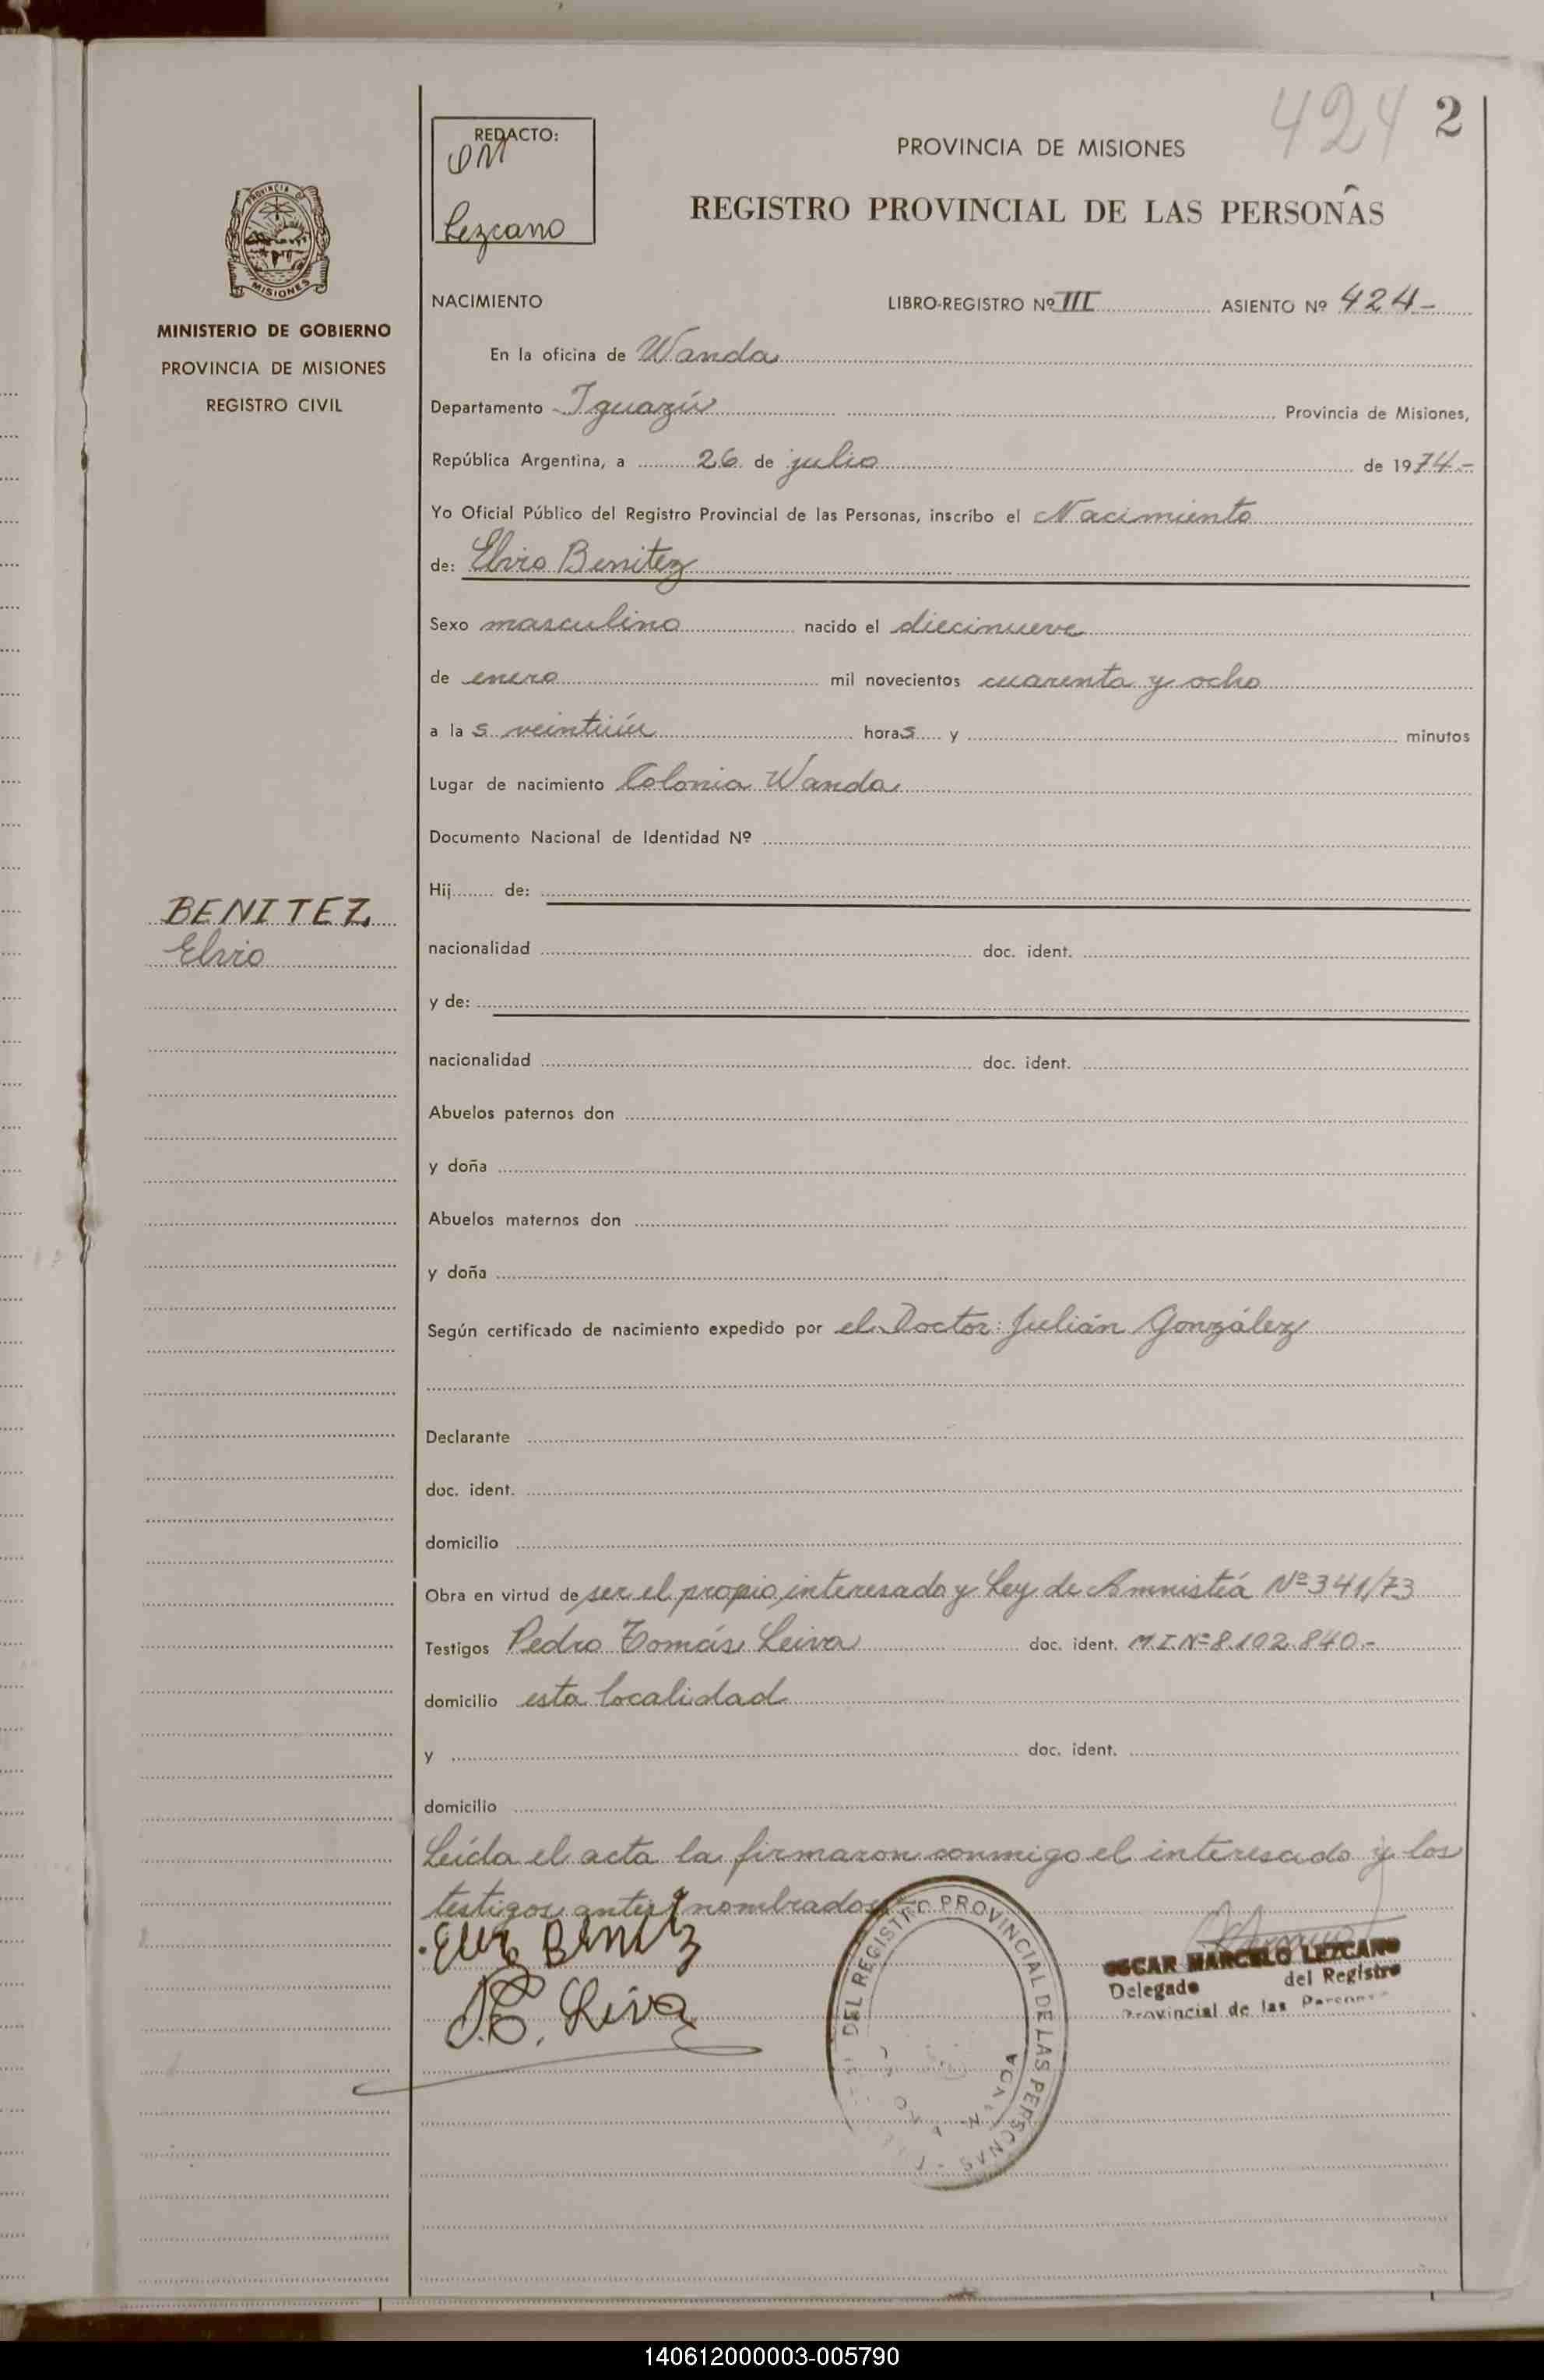 424 2
REDACTO:
Lezcano
PROVINCIA DE MISIONES
REGISTRO PROVINCIAL DE LAS PERSONAS
PROVINCIA DE
MISIONES
MINISTERIO DE GOBIERNO
PROVINCIA DE MISIONES
REGISTRO CIVIL
NACIMIENTO LIBRO-REGISTRO Nº III ASIENTO Nº 424-
En la oficina de Wanda
Departamento Iguazú Provincia de Misiones,
República Argentina, a 26 de julio de 1974.-
Yo Oficial Público del Registro Provincial de las Personas, inscribo el Nacimiento
de: Elvio Benitez
Sexo masculino nacido el diecinueve
de enero mil novecientos cuarenta y ocho
a las veintiún horas y minutos
Lugar de nacimiento Colonia Wanda
Documento Nacional de Identidad Nº
Hij de:
BENITEZ
Elvio
nacionalidad doc. ident.
y de:
nacionalidad doc. ident.
Abuelos paternos don
y doña
Abuelos maternos don
y doña
Según certificado de nacimiento expedido por el Doctor: Julián González
Declarante
doc. ident.
domicilio
Obra en virtud de ser el propio interesado y Ley de Amnistía Nº 341/73
Testigos Pedro Tomás Leiva doc. ident. M.I.Nº 8.102.840.-
domicilio esta localidad
y doc. ident.
domicilio
Leída el acta la firmaron conmigo el interesado y los
testigos antes nombrados
Elvio Benitez
Leiva
DEL REGISTRO PROVINCIAL DE LAS PERSONAS
WANDA
OSCAR MARCELO LEZCANO
Delegado del Registro
Provincial de las Personas
140612000003-005790